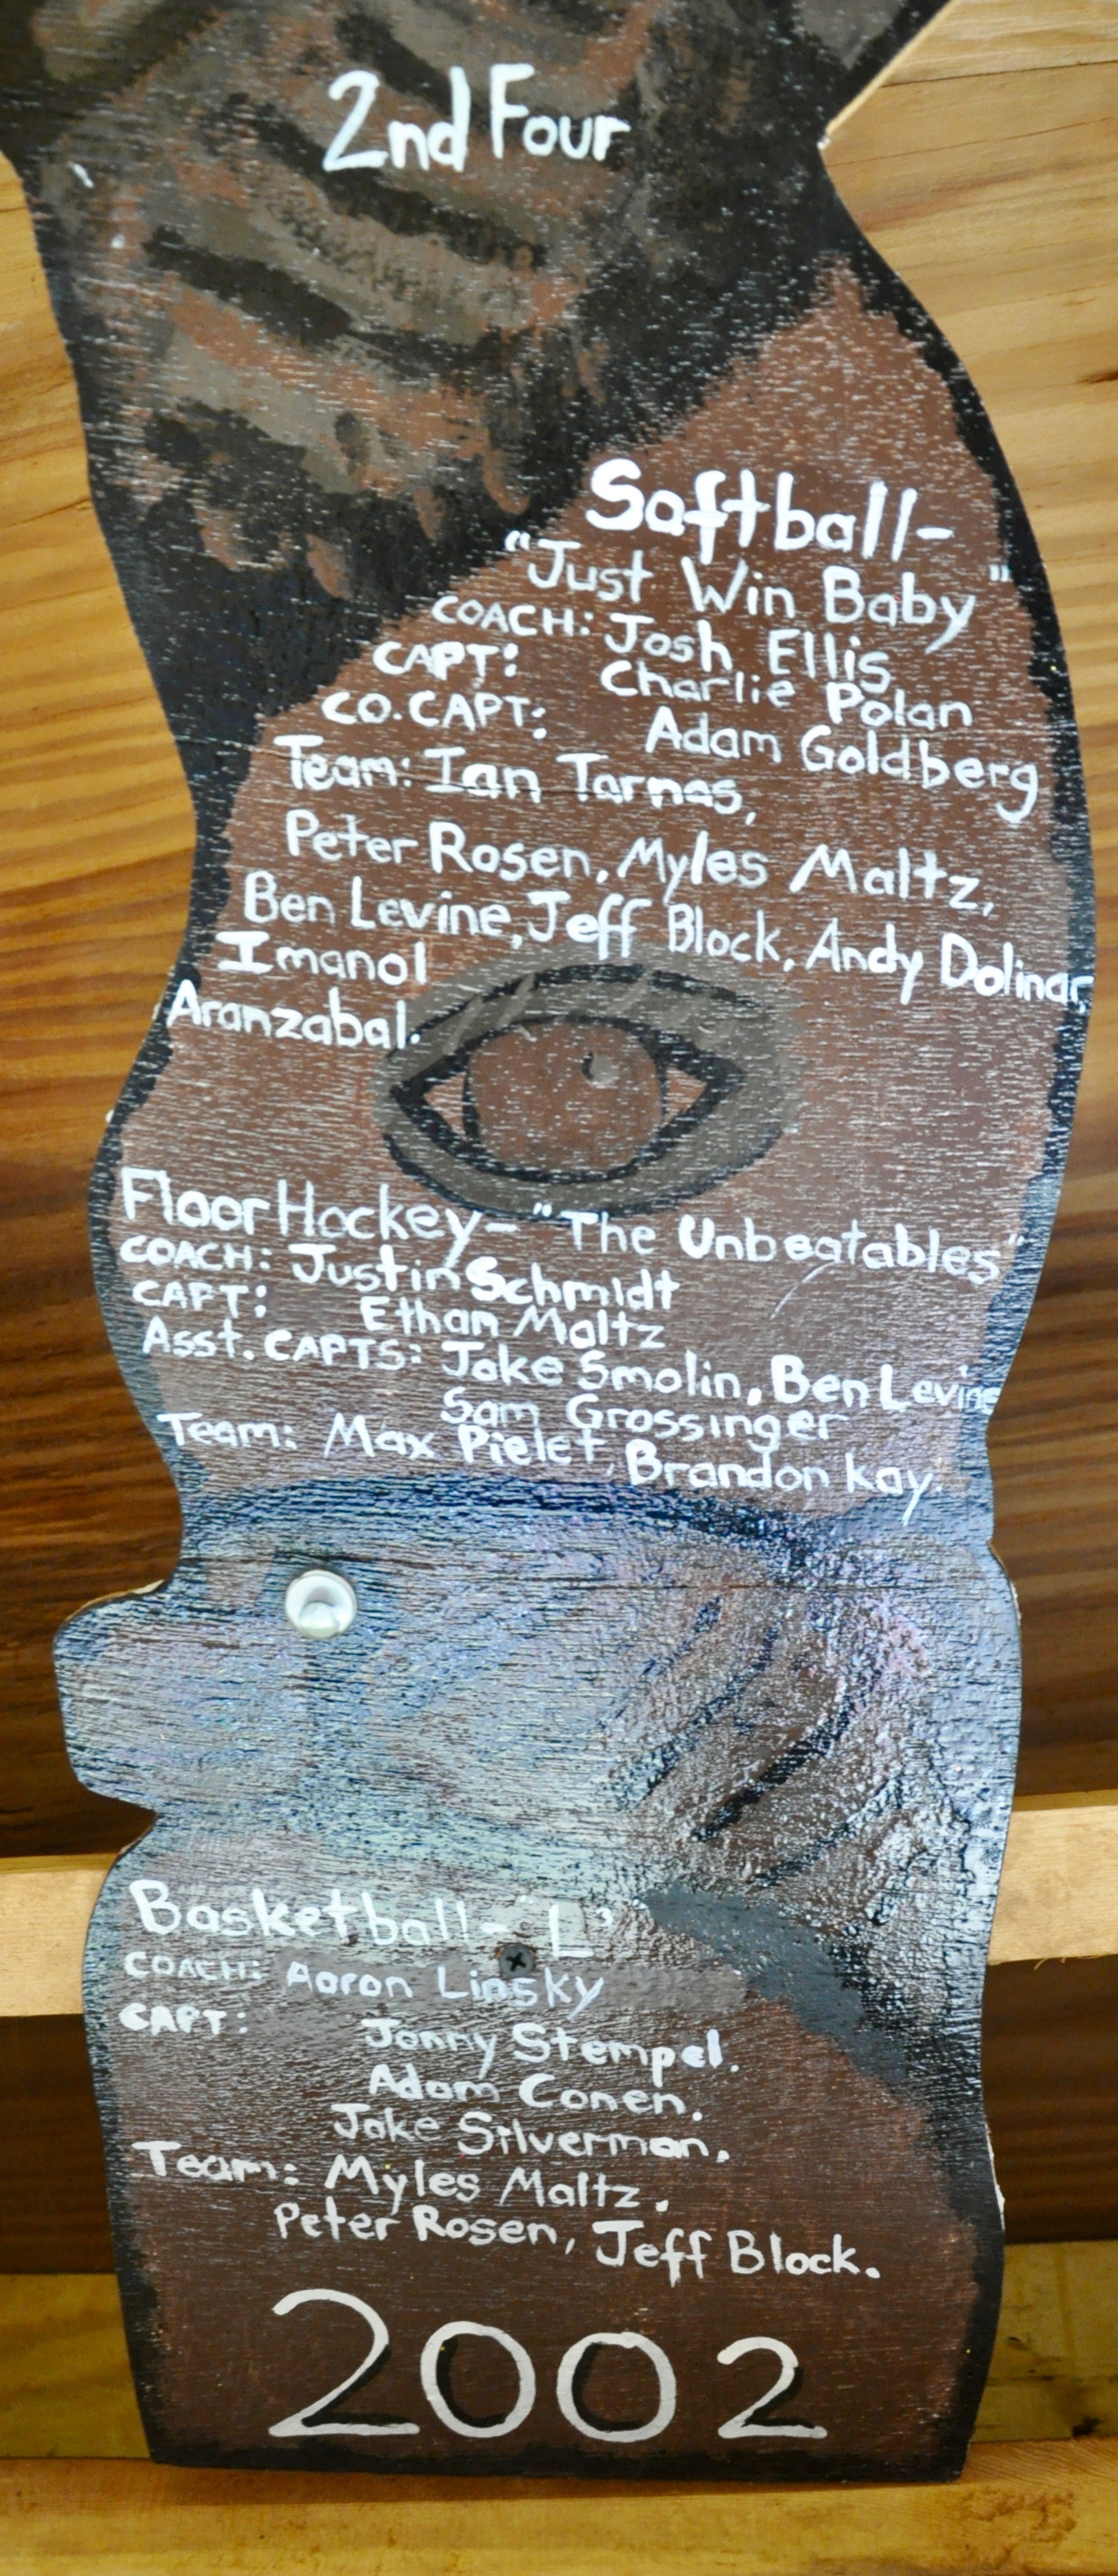 2nd Four
Softball-
"Just Win Baby"
COACH: Josh Ellis
CAPT: Charlie Polan
CO.CAPT: Adam Goldberg
Team: Ian Tarnas,
Peter Rosen, Myles Maltz,
Ben Levine, Jeff Block, Andy Dolinar,
Imanol
Aranzabal.
Floor Hockey- "The Unbeatables"
COACH: Justin Schmidt
CAPT: Ethan Maltz
Asst. CAPTS: Jake Smolin, Ben Levine
Sam Grossinger
Team: Max Pielet, Brandon Kay.
Basketball- "L"
COACH: Aaron Linsky
CAPT: Jonny Stempel.
Adam Conen.
Jake Silverman,
Team: Myles Maltz.
Peter Rosen, Jeff Block.
2002